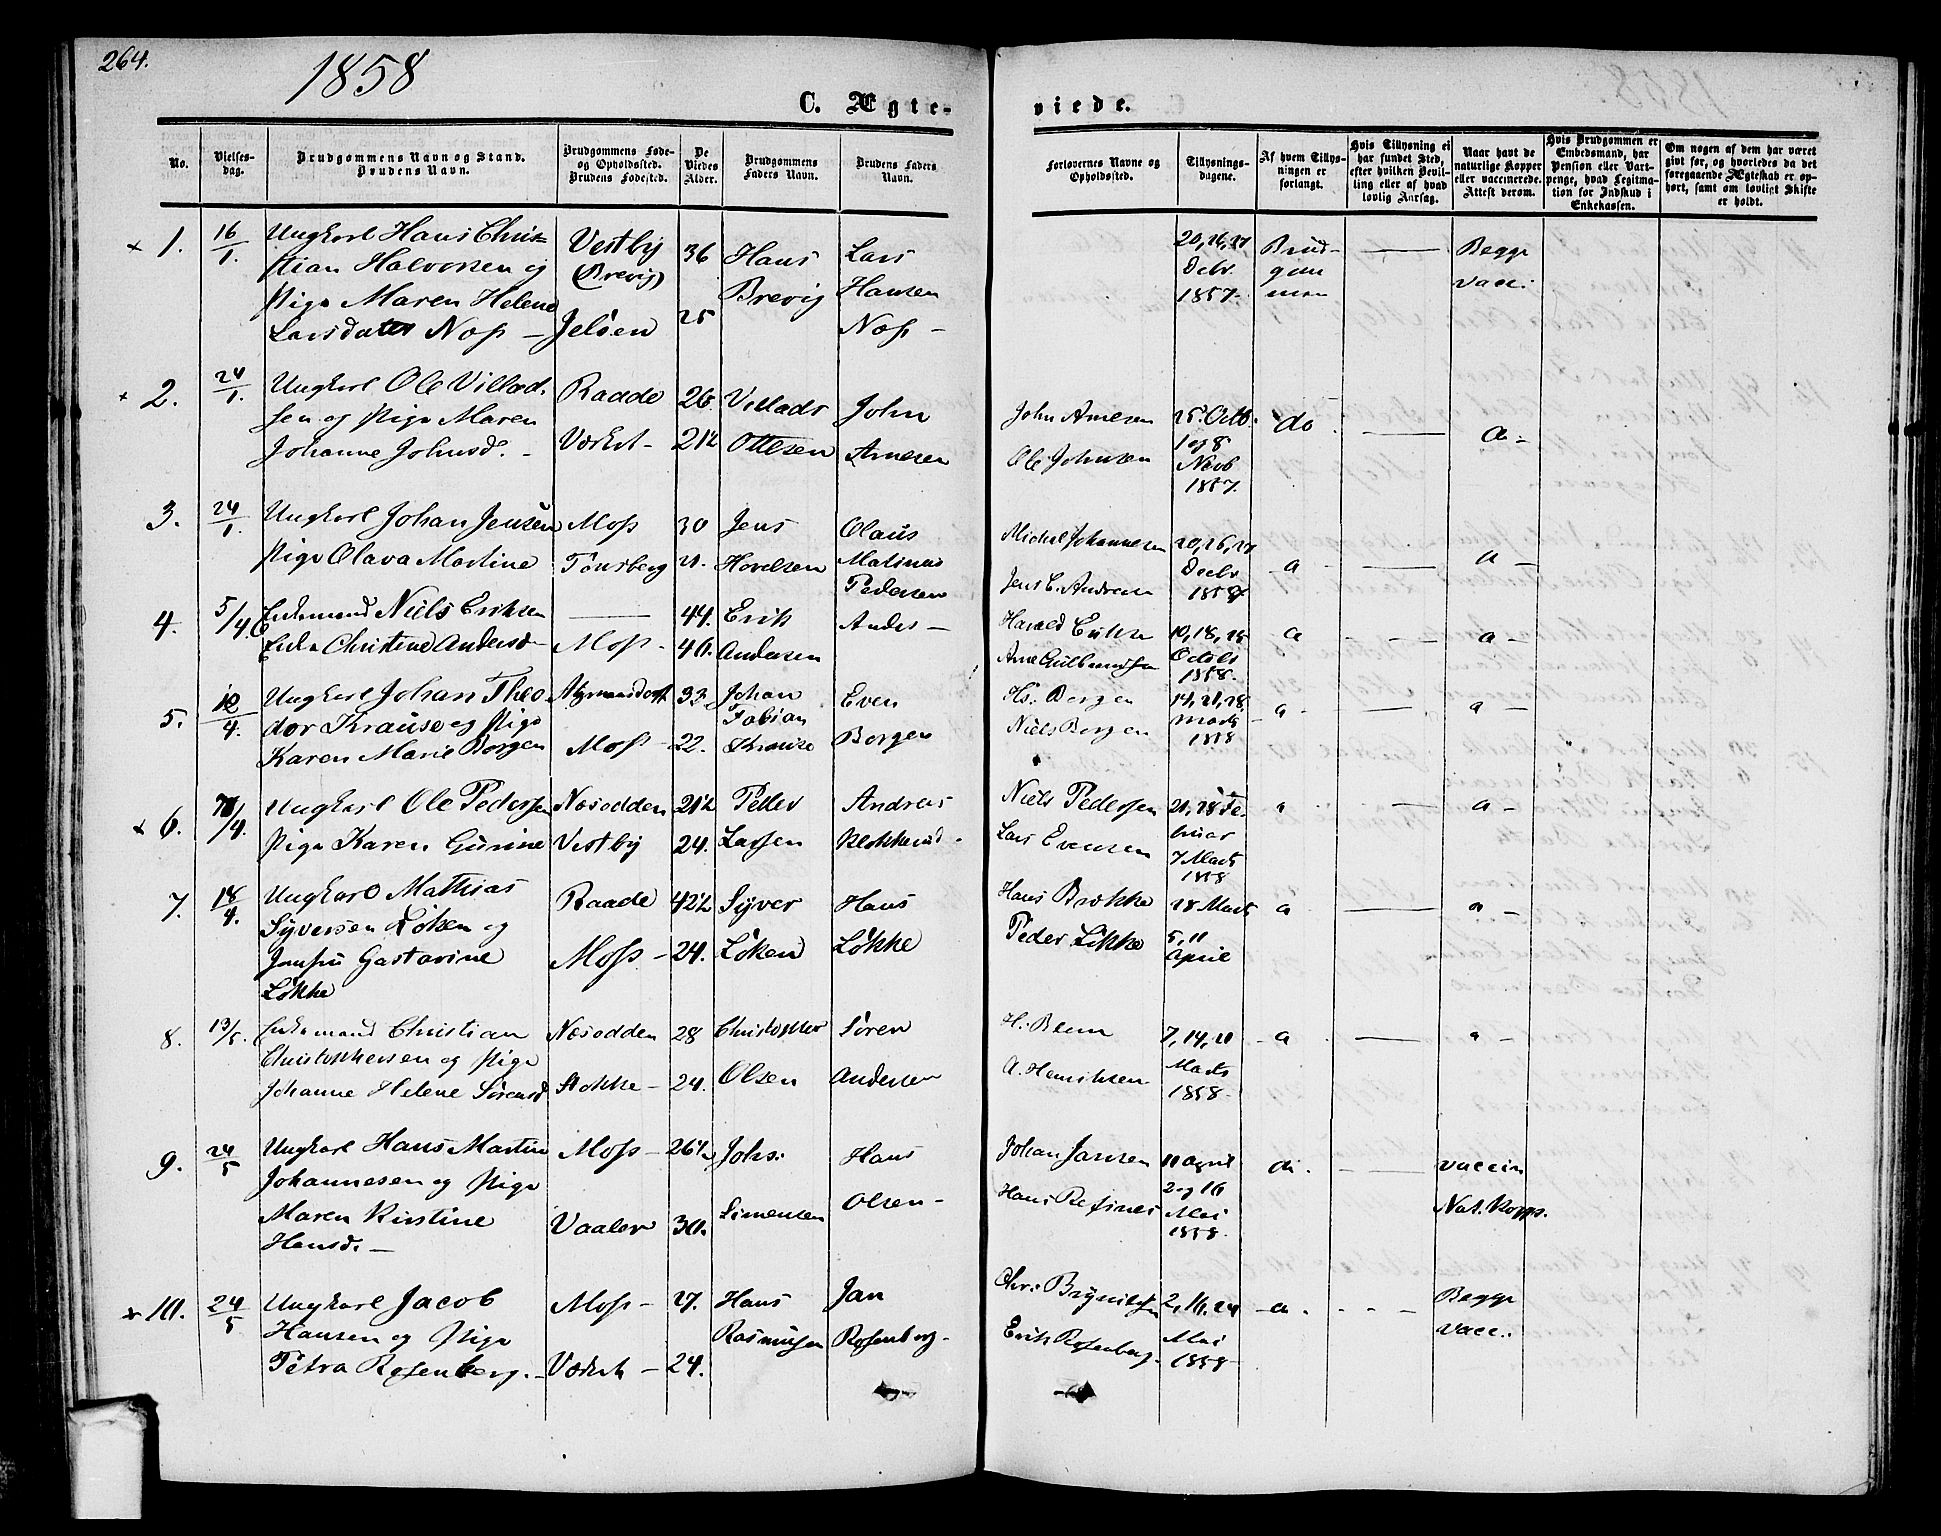 264.
1858
C. Ægte- viede.
No.
Vielses-
dag.
Brudgommens Navn og Stand.
Brudens Navn.
Brudgommens Føde-
og Opholdssted.
Brudens Fødested.
De
Viedes
Alder.
Brudgommens
Faders Navn.
Brudens Faders
Navn.
Forlovernes Navne og
Opholdssted.
Tillysnings-
dagene.
Af hvem Tillys-
ningen er
forlangt.
Hvis Tillysning ei
har fundet Sted,
efter hvilken Bevil-
ling eller af hvad
lovlig Aarsag.
Naar havt de
naturlige Kopper
eller vaccinerede.
Attest derom.
Hvis Brudgommen er
Embedsmand, har
Pension eller Vart-
penge, hvad Legitima-
tion for Indskud i
Enkekassen.
Om nogen af dem har været
givt før, og hvorledes da det
foregaaende Ægteskab er op-
hørt, samt om lovligt Skifte
er holdt.
× 1. 16/1. Ungkarl Hans Chris- Vestby 36 Hans Lars 20, 26, 27 Brud- — Begge
tian Halvorsen og (Brevig) Brevig Hansen Decbr. gom vacc.
Pige Maren Helene 1857. men
Larsdatter Noss — Jeløen 25 Noss —
× 2. 24/1. Ungkarl Ole Villad- Raade 26 Villads John John Arnesen 25. Octb. do — a —
sen og Pige Maren Værket — 21½ Ottesen Arnesen Ole Johnsen 1 og 8
Johanne Johnsd. — Novb
1857.
3. 24/1. Ungkarl Johan Jensen Moss 30 Jens Olaus Michel Johannesen 20, 26, 27 a — a —
Pige Olava Martine Tønsberg 21. Hovelsen Matinus Jens C. Andresen Decbr
Pedersen 1858
4. 5/4. Enkemand Niels Eriksen — 44. Erik Anders — Harald Eriksen 10, 18, 25 a — a —
Enke Christine Andersd — Moss — 40. Andersen Arne Gulbrandsen Octob
1858.
5. 12/4. Ungkarl Johan Theo- 33. Johan Even Hs. Borgen 14, 21, 28, a — a —
dor Krause og Pige Fabian Niels Borgen Marts
Karen Marie Borgen Moss — 22. Krause Borgen 1858
× 6. /4. Ungkarl Ole Pedersen Næsodden 21½ Peder Andreas Niels Pedersen 21, 28 Fe- a — a —
Pige Karen Gurine Vestby 24. Larsen Klokkerud — Lars Evensen bruar
7 Marts
1858
7. 18/4. Ungkarl Mathias Raade 42½ Syver Hans Hans Brokke 28 Marts a — a —
Syversen Løken og Moss — 24. Løken Løkke Peder Løkke 5, 11
Jomfru Gastavine April
Løkke
8. 13/5. Enkemand Christian Næsodden 28 Christopher Søren H. Blom 7, 14, 21 a — a —
Christophersen og Pige Marts
Johanne Helene Sørensd Stokke — 24. Olsen Andersen A. Henriksen 1858.
9. 24/5 Ungkarl Hans Martin Moss — 26½ Johs: Hans Johan Jansen 11 April do. — vaccin
Johannesen og Pige 2 og 16
Maren Kirstine Vaaler 30. Simensen Olsen — Hans Refsnes Mai Nat. Kopp.
Hansd. — 1858.
× 10. 24/5 Ungkarl Jacob Moss — 27. Hans Jan Chr. Brynildsen 2, 16, 24 a. — Begge
Hansen og Pige Rasmussen Rosenberg. Erik Rosenberg. Mai vacc.
Petra Rosenberg. — Værket — 24. 1858